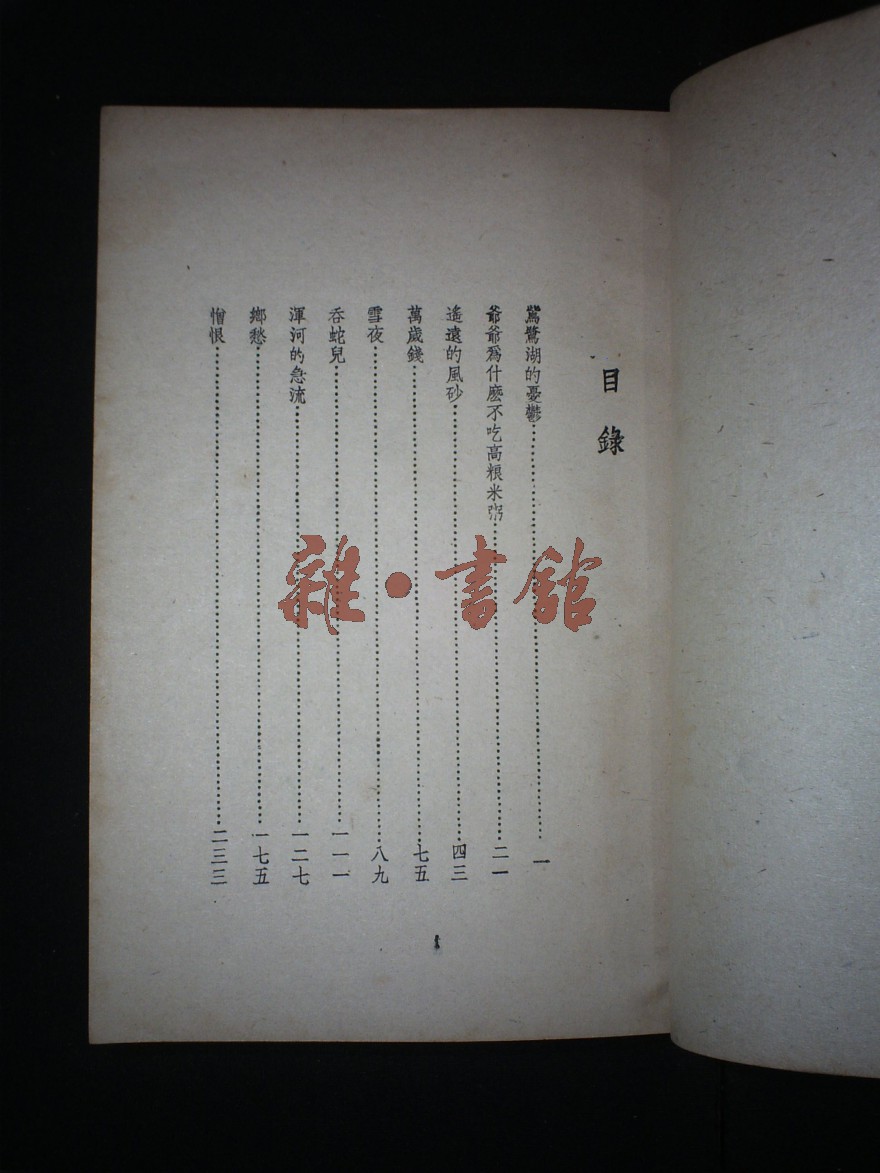 目錄
鴜鷺湖的憂鬱……一
爺爺爲什麽不吃高粮米粥……二一
遙遠的風砂……四三
萬歲錢……七五
雪夜……八九
吞蛇兒……一一一
渾河的急流……一二七
鄉愁……一七五
憎恨……二三三
雜·書館